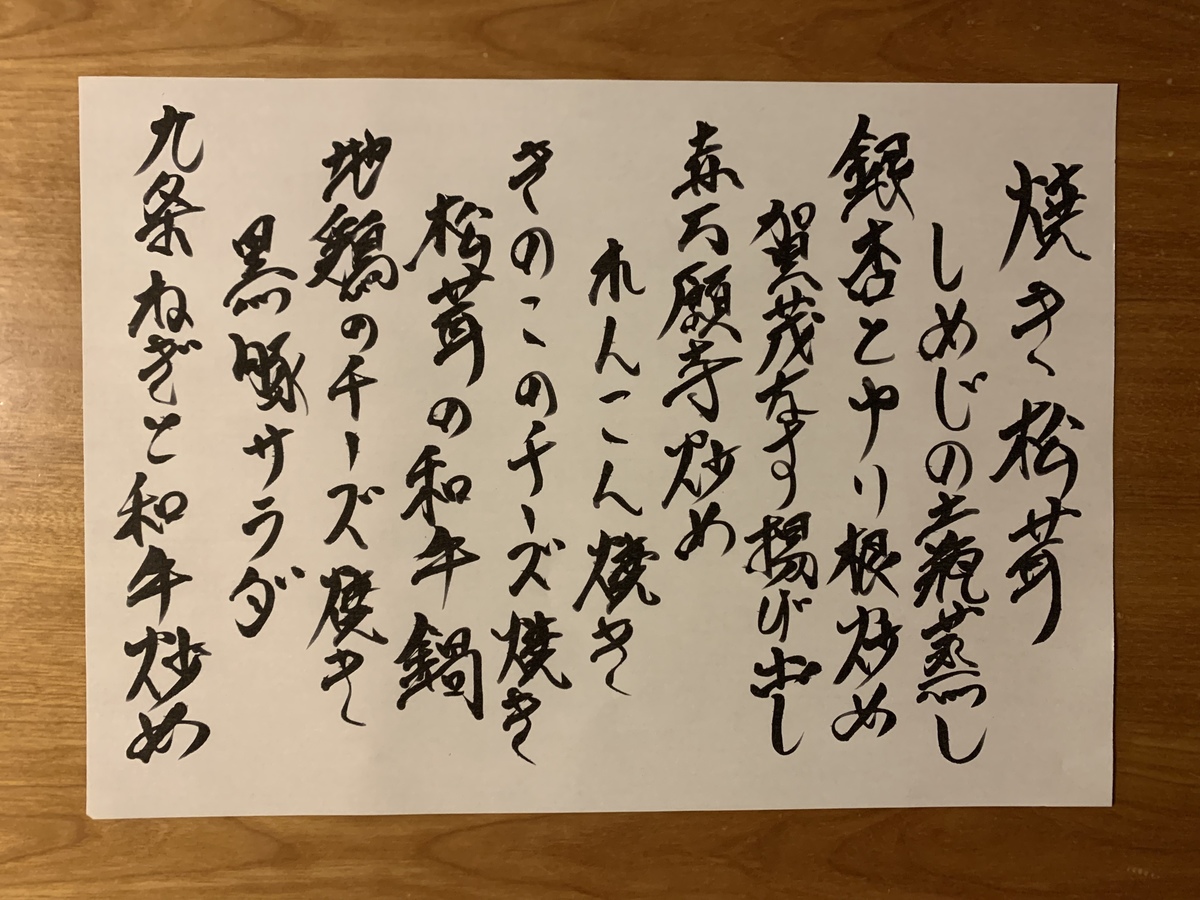 焼き松茸
しめじの土瓶蒸し
銀杏とゆり根炒め
賀茂なす揚げ出し
赤万願寺炒め
れんこん焼き
きのこのチーズ焼き
松茸の和牛鍋
地鶏のチーズ焼き
黒豚サラダ
九条ねぎと和牛炒め